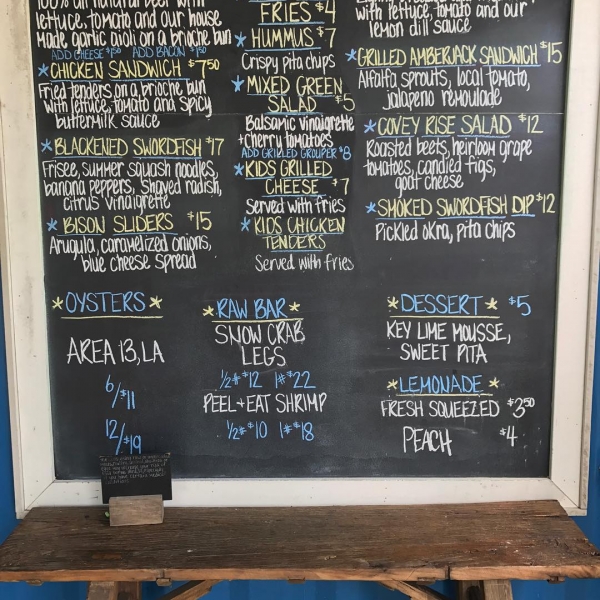 100% all natural beef with
lettuce, tomato and our house
made garlic aioli on a brioche bun
ADD CHEESE $1.50 ADD BACON $1.50
* CHICKEN SANDWICH $7.50
Fried tenders on a brioche bun
with lettuce, tomato and spicy
buttermilk sauce
* BLACKENED SWORDFISH $17
Frisee, summer squash noodles,
banana peppers, shaved radish,
citrus vinaigrette
* BISON SLIDERS $15
Arugula, caramelized onions,
blue cheese spread
FRIES $4
* HUMMUS $7
Crispy pita chips
* MIXED GREEN
SALAD $5
Balsamic vinaigrette
+ cherry tomatoes
ADD GRILLED GROUPER $8
* KIDS GRILLED
CHEESE $7
Served with fries
* KIDS CHICKEN
TENDERS
Served with fries
with lettuce, tomato and our
lemon dill sauce
* GRILLED AMBERJACK SANDWICH $15
Alfalfa sprouts, local tomato,
jalapeno remoulade
* COVEY RISE SALAD $12
Roasted beets, heirloom grape
tomatoes, candied figs,
goat cheese
* SMOKED SWORDFISH DIP $12
Pickled okra, pita chips
* OYSTERS *
AREA 13, LA
6/$11
12/$19
* RAW BAR *
SNOW CRAB
LEGS
1/2# $12 1# $22
PEEL + EAT SHRIMP
1/2# $10 1# $18
* DESSERT * $5
KEY LIME MOUSSE,
SWEET PITA
* LEMONADE *
FRESH SQUEEZED $3.50
PEACH $4